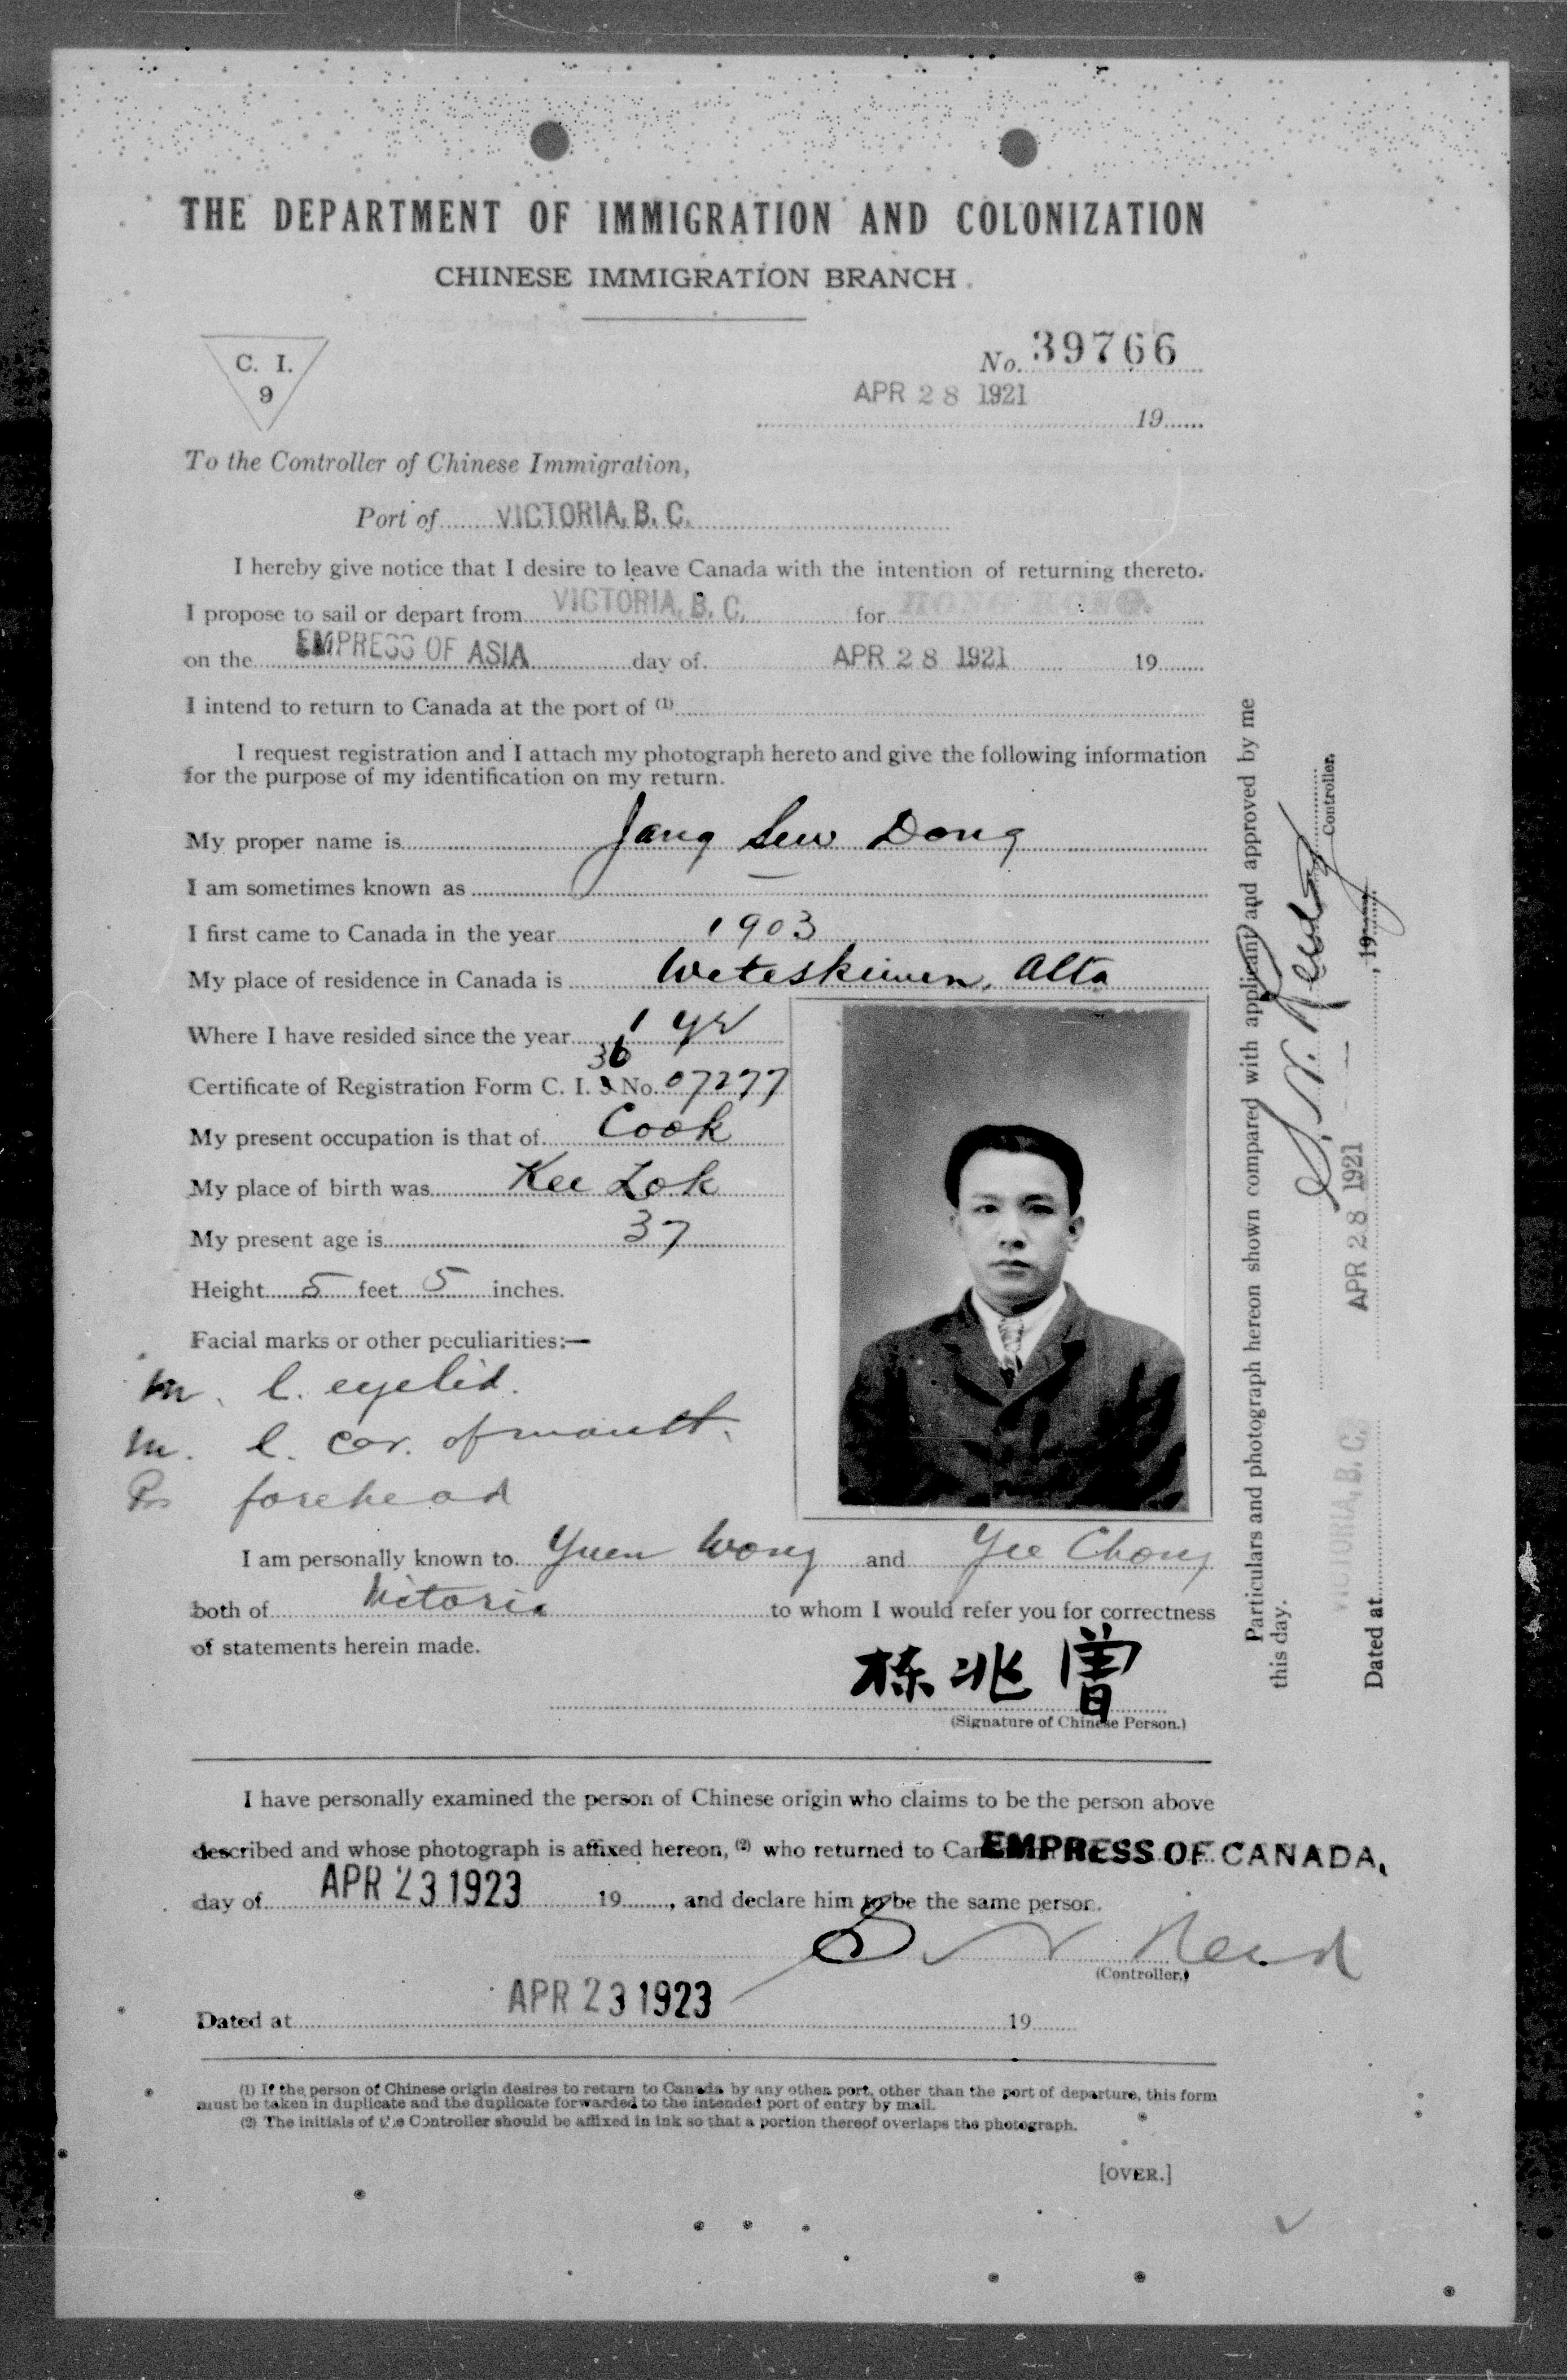 THE DEPARTMENT OF IMMIGRATION AND COLONIZATION
CHINESE IMMIGRATION BRANCH
C. I.
9
No. 39766
APR 28 1921
19
To the Controller of Chinese Immigration,
Port of VICTORIA, B. C.
I hereby give notice that I desire to leave Canada with the intention of returning thereto.
I propose to sail or depart from VICTORIA, B. C. for HONG KONG.
on the EMPRESS OF ASIA day of APR 28 1921 19
I intend to return to Canada at the port of (1)
I request registration and I attach my photograph hereto and give the following information
for the purpose of my identification on my return.
My proper name is Jang Sew Dong
I am sometimes known as —
I first came to Canada in the year 1903
My place of residence in Canada is Weteskiwen, Alta
Where I have resided since the year 1 yr
36
Certificate of Registration Form C. I. 5 No. 07277
My present occupation is that of Cook
My place of birth was Kee Lok
My present age is 37
Height 5 feet 5 inches.
Facial marks or other peculiarities:—
m. l. eyelid.
m. l. cor. of mouth.
forehead
I am personally known to Yuen Wong and Yee Chong
both of Victoria to whom I would refer you for correctness
of statements herein made.
栋兆曾
(Signature of Chinese Person.)
I have personally examined the person of Chinese origin who claims to be the person above
described and whose photograph is affixed hereon, (2) who returned to Can EMPRESS OF CANADA,
day of APR 23 1923 19, and declare him to be the same person.
(Controller.)
Dated at APR 23 1923 19
(1) If the person of Chinese origin desires to return to Canada by any other port, other than the port of departure, this form
must be taken in duplicate and the duplicate forwarded to the intended port of entry by mail.
(2) The initials of the Controller should be affixed in ink so that a portion thereof overlaps the photograph.
[OVER.]
Particulars and photograph hereon shown compared with applicant and approved by me
this day.
Controller.
Dated at VICTORIA, B. C. APR 28 1921, 19